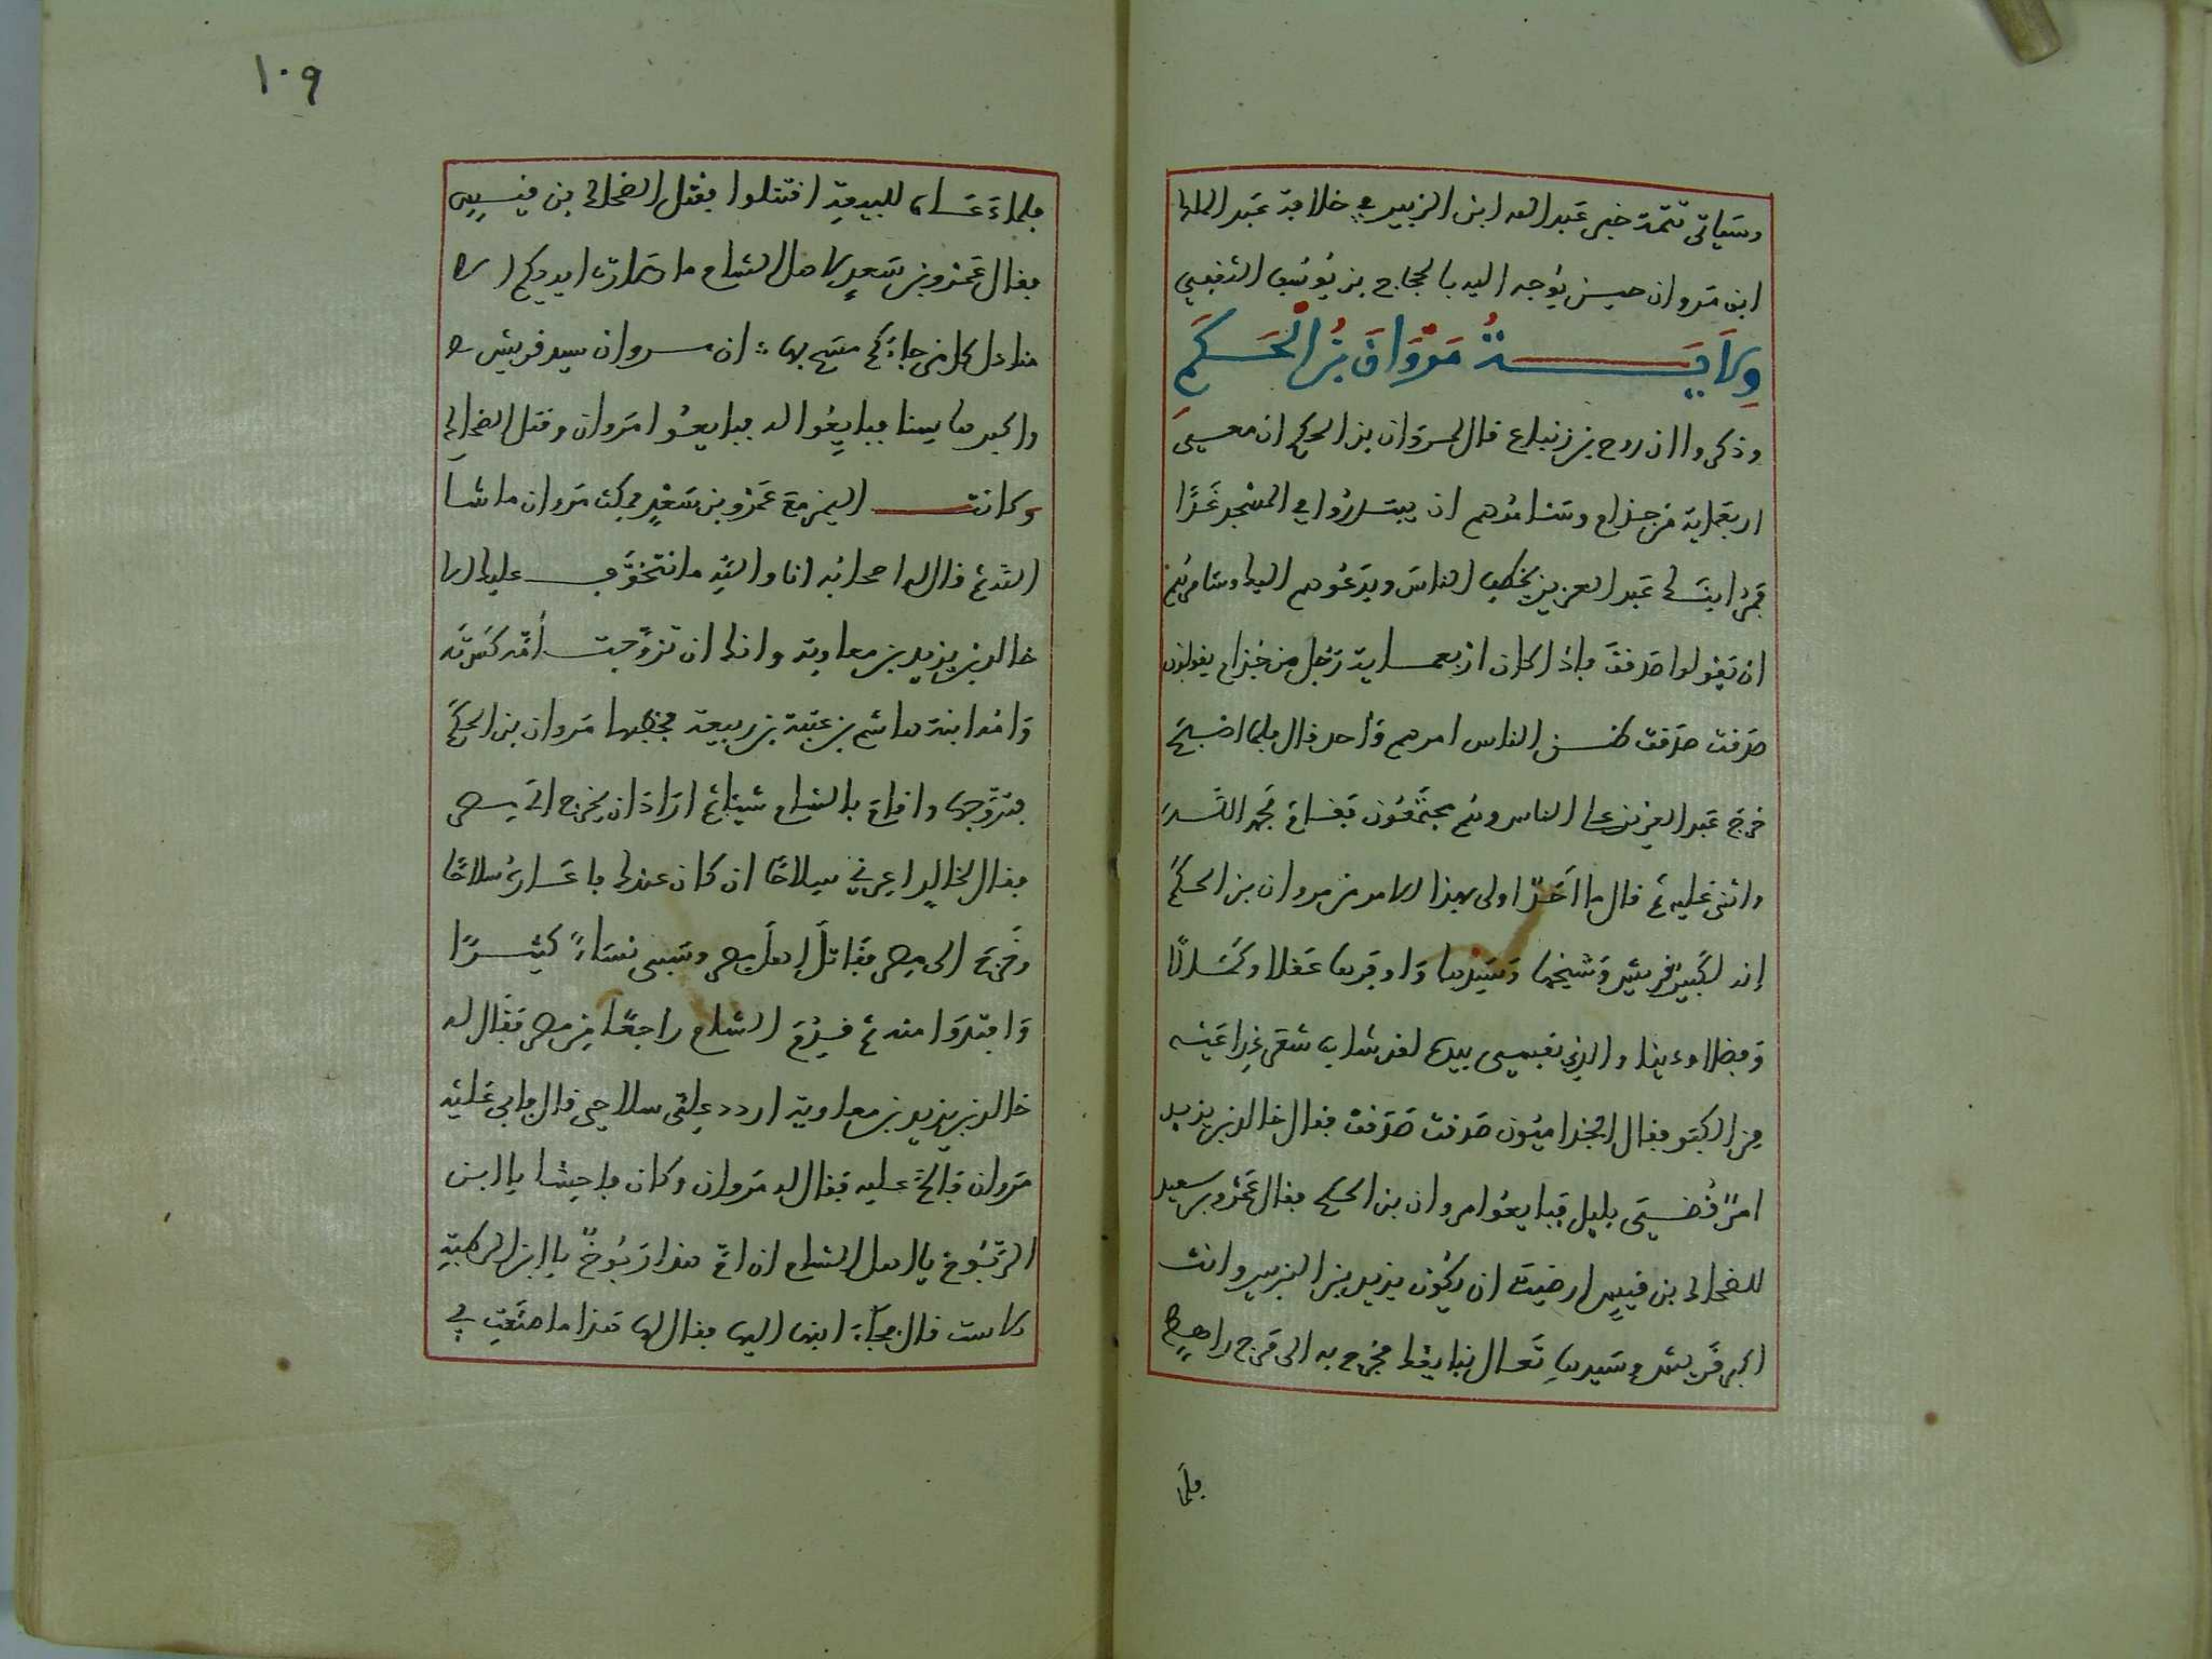 وسياتي تتمة خبر عبد الله ابن الزبير في خلافة عبد الملك
ابن مروان حين يوجه اليه بالحجاج بن يوسف الثقفي
ولاية مروان بن الحكم
وذكروا ان روح بن زنباع قال لمروان بن الحكم ان معي
اربعماية من جذام وسئامرهم ان يبتدروا في المسجد غدا
فمر ابنك عبد العزيز يخطب الناس ويدعوهم اليك وسئامرهم
ان يقولوا صدقت فاذا كان اربعماية رجل من جذام يقولون
صدقت صدقت ظن الناس امرهم واحد قال فلما اصبح
خرج عبد العزيز على الناس وهم مجتمعون فقام فحمد الله
واثنى عليه ثم قال ما احد اولى بهذا الامر من مروان بن الحكم
إنه لكبير قريش وشيخها وسيدها واوفرها عقلا وكمالا
وفضلا ودينا والذي نفسي بيده لقد شاب شعر ذراعيه
من الكبر فقال الجذاميون صدقت صدقت فقال خالد بن يزيد
امر قضي بليل فبايعوا مروان بن الحكم فقال عمرو بن سعيد
للضحاك بن قيس ارضيت ان يكون يزيد بن الزبير وانت
اكبر قريش وسيدها تعال نبايعك فخرج به الى مرج راهط
فلما
١٠٩
فلما دعاه للبيعة اقتتلوا فقتل الضحاك بن قيس
فقال عمرو بن سعيد لاهل الشام ما صارت ايديكم الا
مناديل كل من جاءكم مسح بها ان مروان سيد قريش
واكبرها سنا فبايعوا له فبايعوا مروان وقتل الضحاك
وكانت اليمن مع عمرو بن سعيد فمكث مروان ما شا
الله ثم قال له اصحابه انا والله ما نتخوف عليك الا
خالد بن يزيد بن معاوية وانك ان تزوجت امه كسرته
وامه ابنة هاشم بن عتبة بن ربيعة فخطبها مروان بن الحكم
فتزوجها واقام بالشام شيئا ثم اراد ان يخرج الى مصر
فقال لخالد اعرني سلاحا ان كان عندك فاعاره سلاحا
وخرج الى مصر فقاتل اهل مصر وسبى نساء كثيرا
وافتدوا منه ثم قدم الشام راجعا من مصر فقال له
خالد بن يزيد بن معاوية اردد علي سلاحي قال فابى عليه
مروان فالح عليه فقال له مروان وكان فاحشا يا ابن
الربوخ يا اهل الشام ان ام هذا ربوخ يا ابن الرطبة
الاست قال فجاء ابنها اليها فقال لها هذا ما صنعت بي